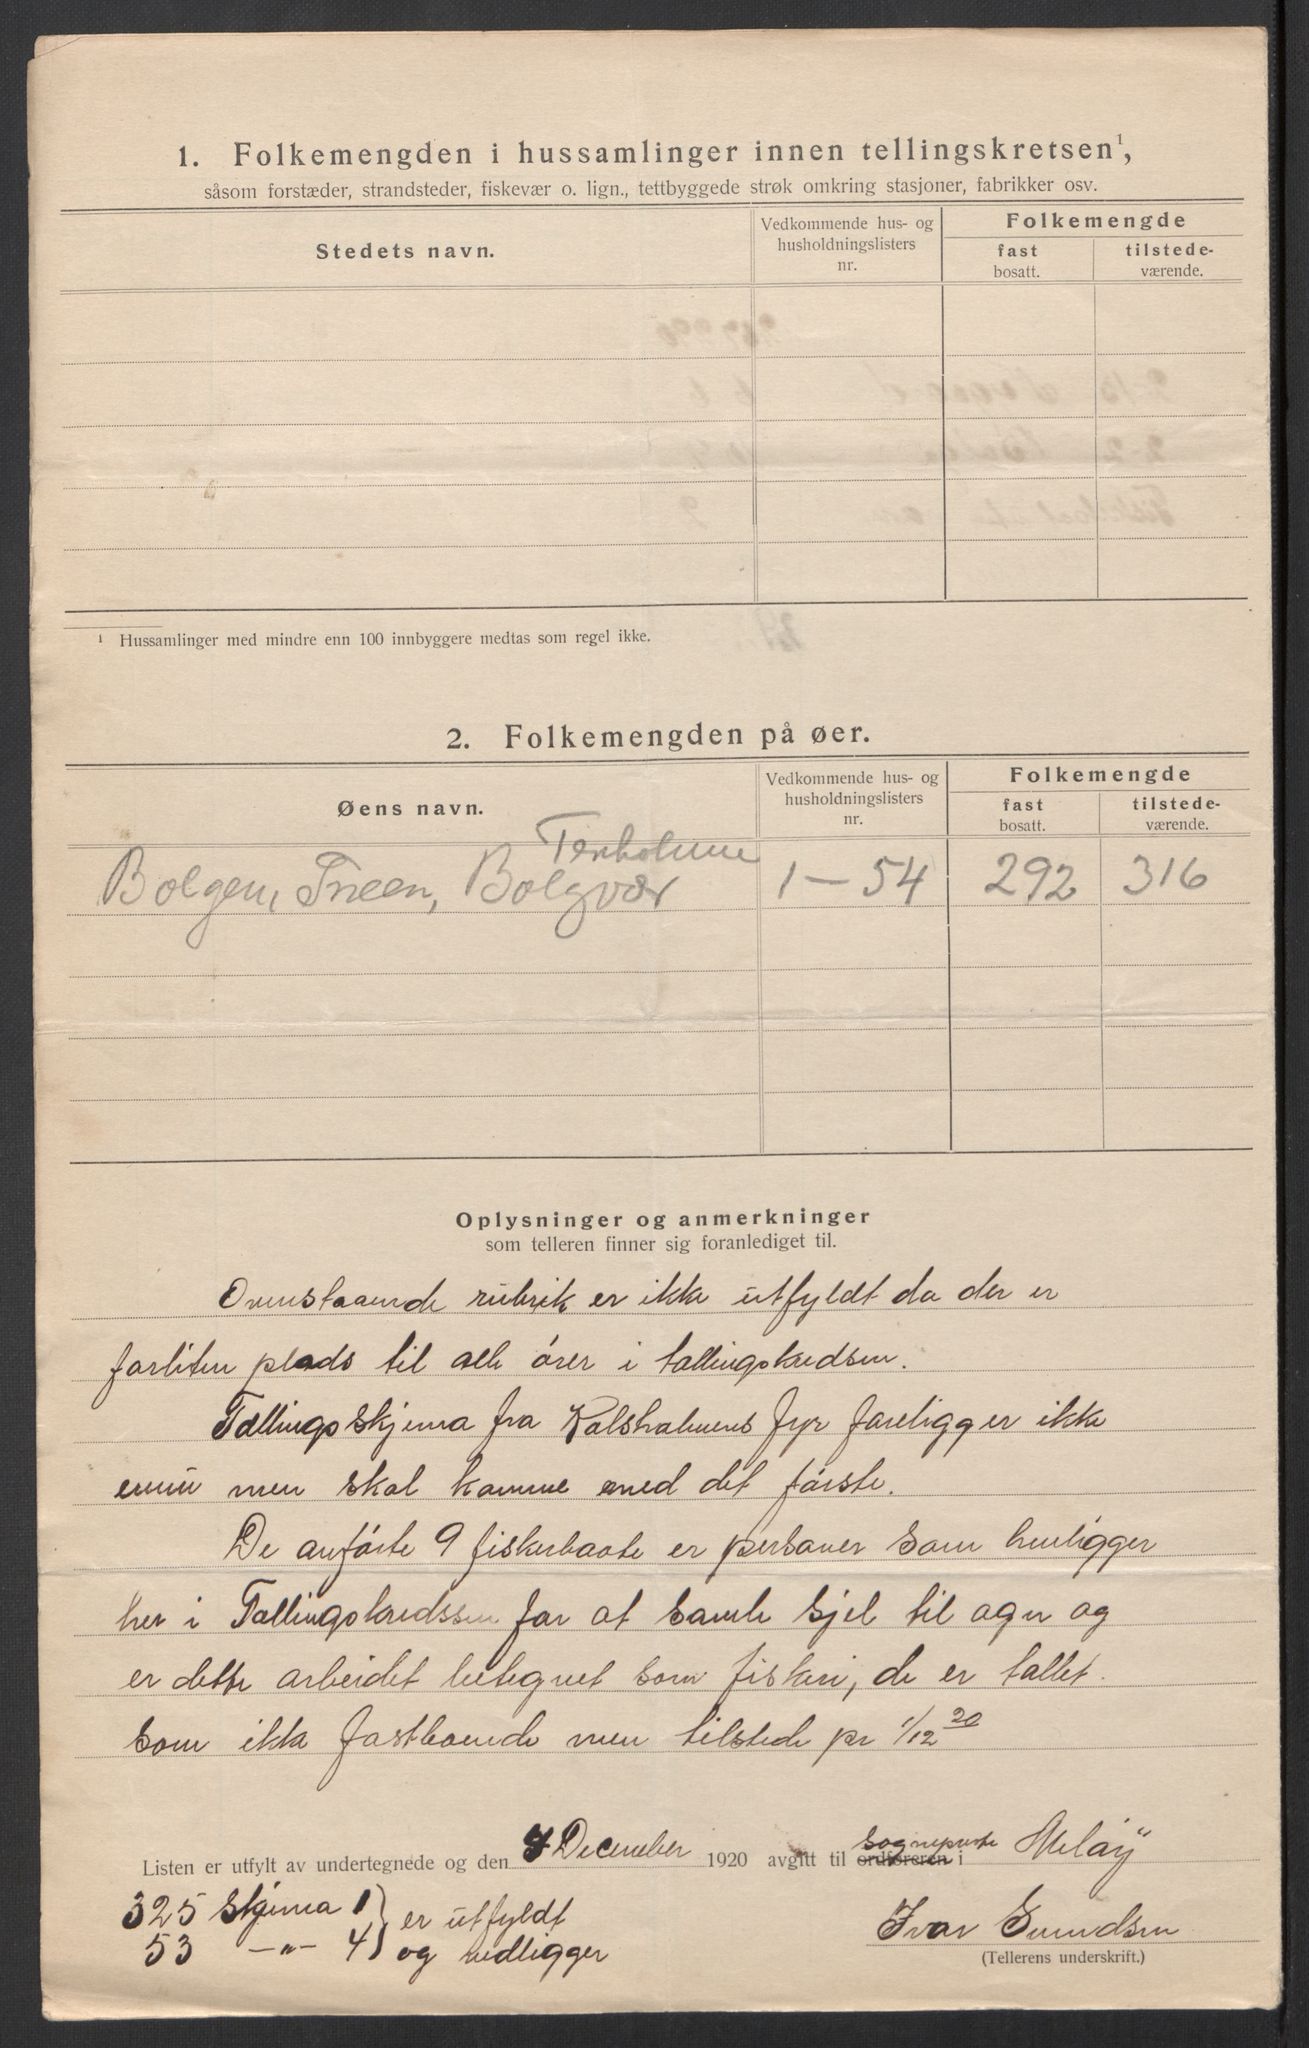 1. Folkemengden i hussamlinger innen tellingskretsen¹,
såsom forstæder, strandsteder, fiskevær o. lign., tettbyggede strøk omkring stasjoner, fabrikker osv.
Stedets navn.
Vedkommende hus- og husholdningslisters nr.
Folkemengde
fast bosatt.
tilstede-værende.
¹ Hussamlinger med mindre enn 100 innbyggere medtas som regel ikke.
2. Folkemengden på øer.
Øens navn.
Vedkommende hus- og husholdningslisters nr.
Folkemengde
fast bosatt.
tilstede-værende.
Tenholmene
Bolgen, Treen, Bolgvær 1 — 54 292 316
Oplysninger og anmerkninger
som telleren finner sig foranlediget til.
Ovenstaaende rubrik er ikke utfyldt da der er
forliten plads til alle öer i tællingskredsen.
Tællingsskjema fra Kalsholmens fyr foreligger ikke
ennu men skal komme med det første.
De anførte 9 fiskerbaate er personer som henligger
her i Tællingskredssen for at samle sjel til agn og
er dette arbeidet betegnet som fiskeri, de er tallet
som ikke fastboende men tilstede pr 1/12 20
Listen er utfylt av undertegnede og den 7 December 1920 avgitt til ordføreren sogneprest i Meløy
325 Skjema 1 } er utfyldt
53 —"— 4 } og vedligger
Ivar Svendsen
(Tellerens underskrift.)